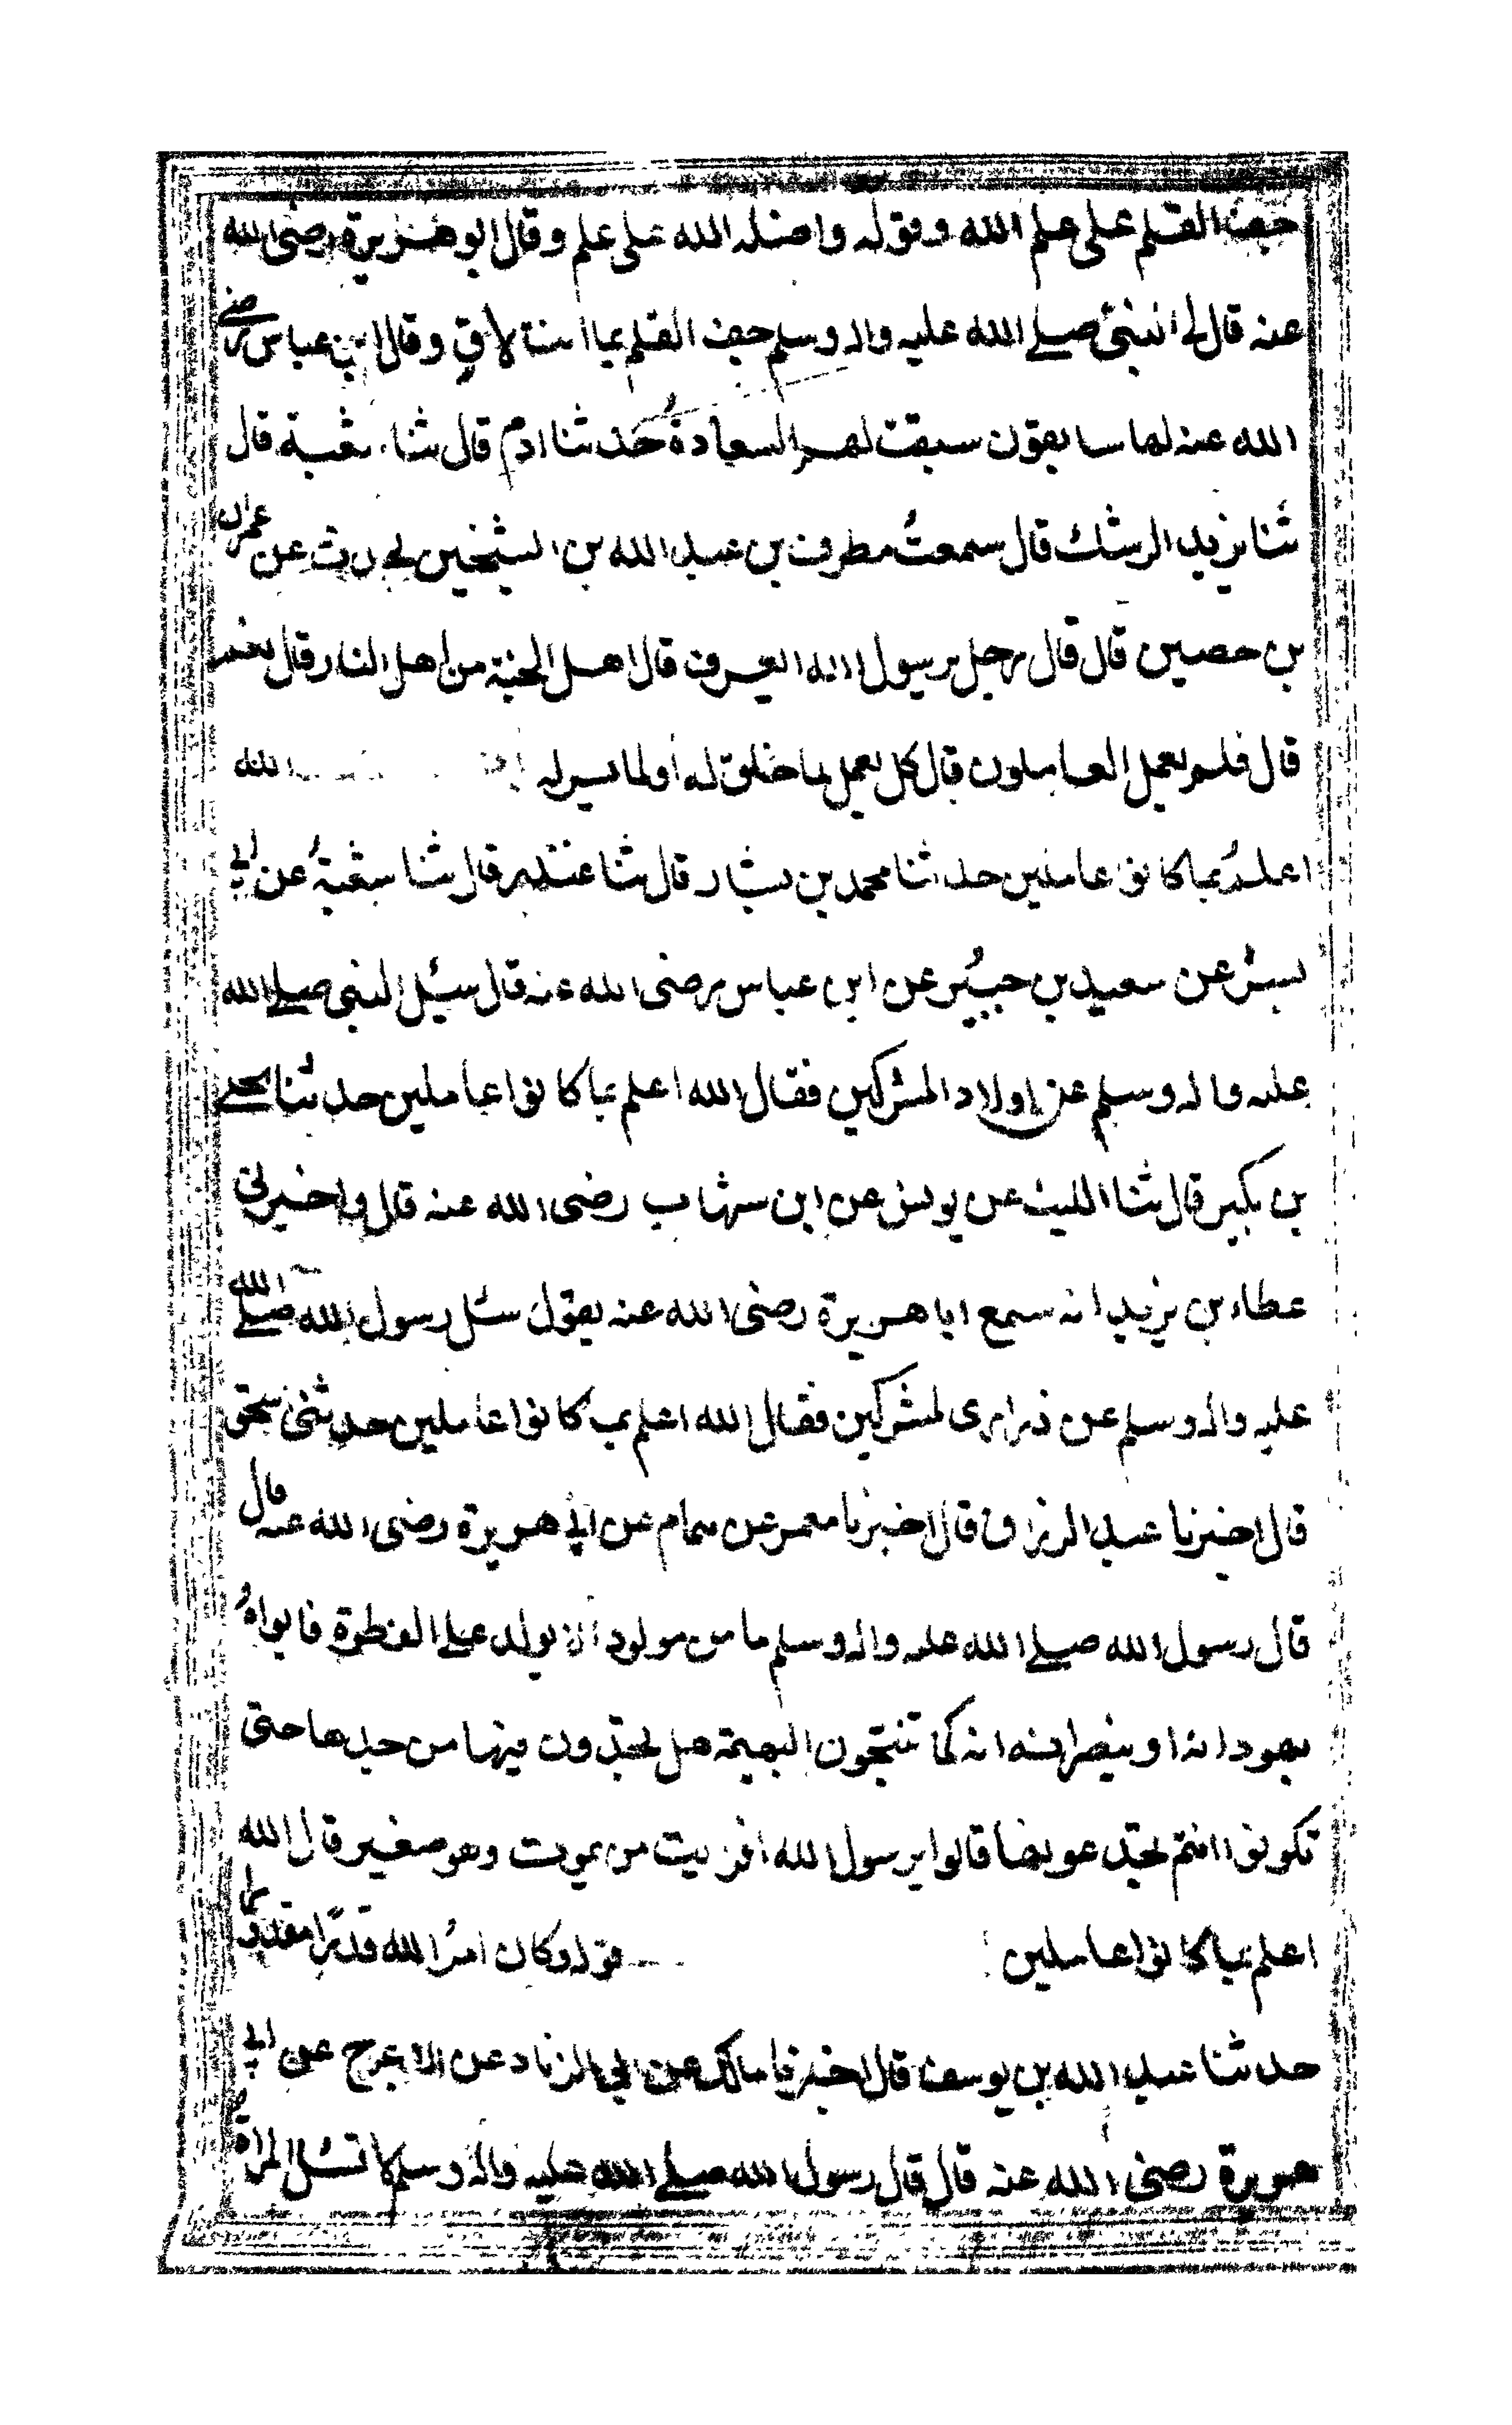 جف القلم على علم الله وقوله واضله الله على علم وقال ابو هريرة رضى الله
عنه قال لى النبى صلى الله عليه واله وسلم جف القلم بما انت لاق وقال ابن عباس رضى
الله عنه لها سابقون سبقت لهم السعادة حدثنا ادم قال ثنا شعبة قال
ثنا يزيد الرشك قال سمعت مطرف بن عبد الله بن الشخير يحدث عن عمران
بن حصين قال قال رجل يرسول الله ايعرف قال اهل الجنة من اهل النار قال نعم
قال فلم يعمل العاملون قال كل يعمل لما خلق له او لما يسر له الله
اعلم بما كانوا عاملين حدثنا محمد بن بشار قال ثنا غندر قال ثنا شعبة عن ابى
بشر عن سعيد بن جبير عن ابن عباس رضى الله عنه قال سئل النبى صلى الله
عليه واله وسلم عن اولاد المشركين فقال الله اعلم بما كانوا عاملين حدثنا يحيى
بن بكير قال ثنا الليث عن يونس عن ابن شهاب رضى الله عنه قال واخبرنى
عطاء بن يزيد انه سمع ابا هريرة رضى الله عنه يقول سئل رسول الله صلى الله
عليه واله وسلم عن ذرارى لمشركين فقال الله اعلم بما كانوا عاملين حدثنى سحق
قال اخبرنا عبد الرزاق قال اخبرنا معمر عن همام عن ابى هريرة رضى الله عنه قال
قال رسول الله صلى الله عليه واله وسلم ما من مولود الا يولد على الفطرة فابواه
يهودانه او ينصرانه كما تنتجون البهيمة هل تجدون فيها من جدعا حتى
تكونوا انتم تجدعونها قالوا يرسول الله افرءيت من يموت وهو صغير قال الله
اعلم بما كانوا عاملين قوله وكان امر الله قدرا مقدورا
حدثنا عبد الله بن يوسف قال اخبرنا مالك عن ابى الزناد عن الاعرج عن ابى
هريرة رضى الله عنه قال قال رسول الله صلى الله عليه واله وسلم لا تسئل المراة